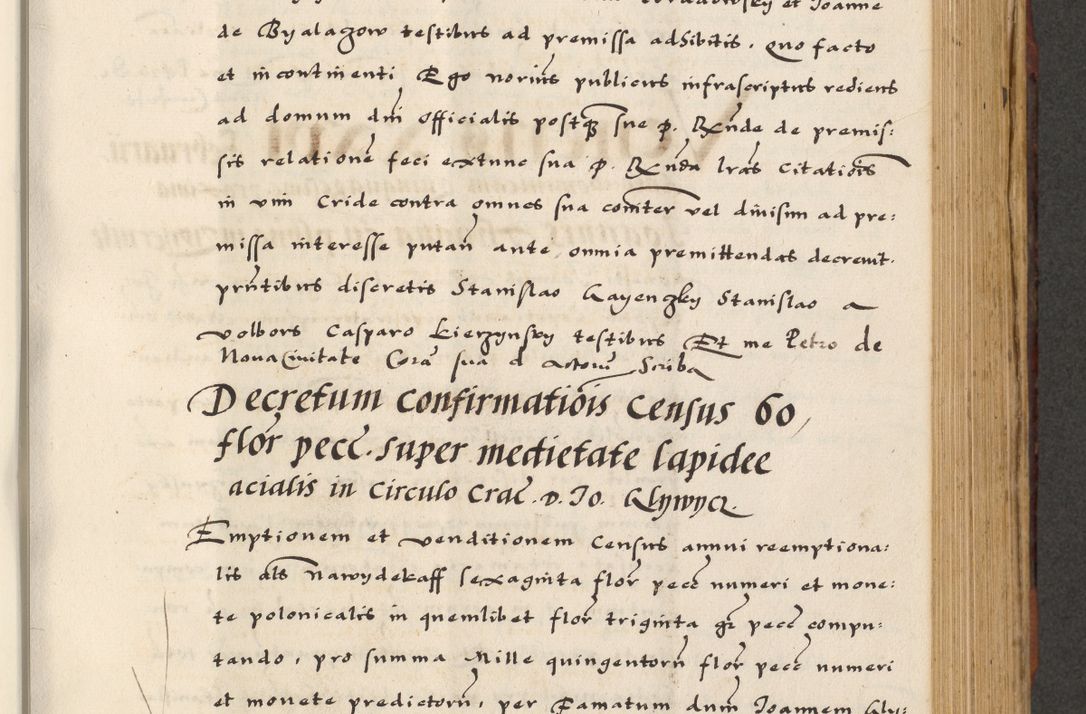 et Joanne
de Byalagow testibus ad premissa adhibitis. Quo facto
et incontinenti Ego norius publicus infrascriptus rediens
ad domum dni Officialis postq sue p. Rnde de premis:
sis relatione feci extunc sua p. Rnda lras Citatiois
in vim Cride contra omnes sua coiter vel divisim ad pre:
missa interesse putan ante omia premittendas decrevit.
prntibus discretis Stanislao Gayenczky Stanislao a
Volbors Casparo Kierzynsky testibus Et me Petro de
Nova Civitate Cora sua d actoru Scriba
Decretum confirmatiois Census 60
flor pecc. super medietate lapidee
acialis in Circulo Crac. D. Jo. Glywycz
Emptionem et venditionem Census annui reemptiona:
lis als nawydekaff sexaginta flor pecc numeri et mone:
te polonicalis in quemlibet flor triginta gr pecc compu:
tando, pro summa Mille quingentoru flor pecc numeri
et monete predictoru, per Famatum dum Joannem Gly: